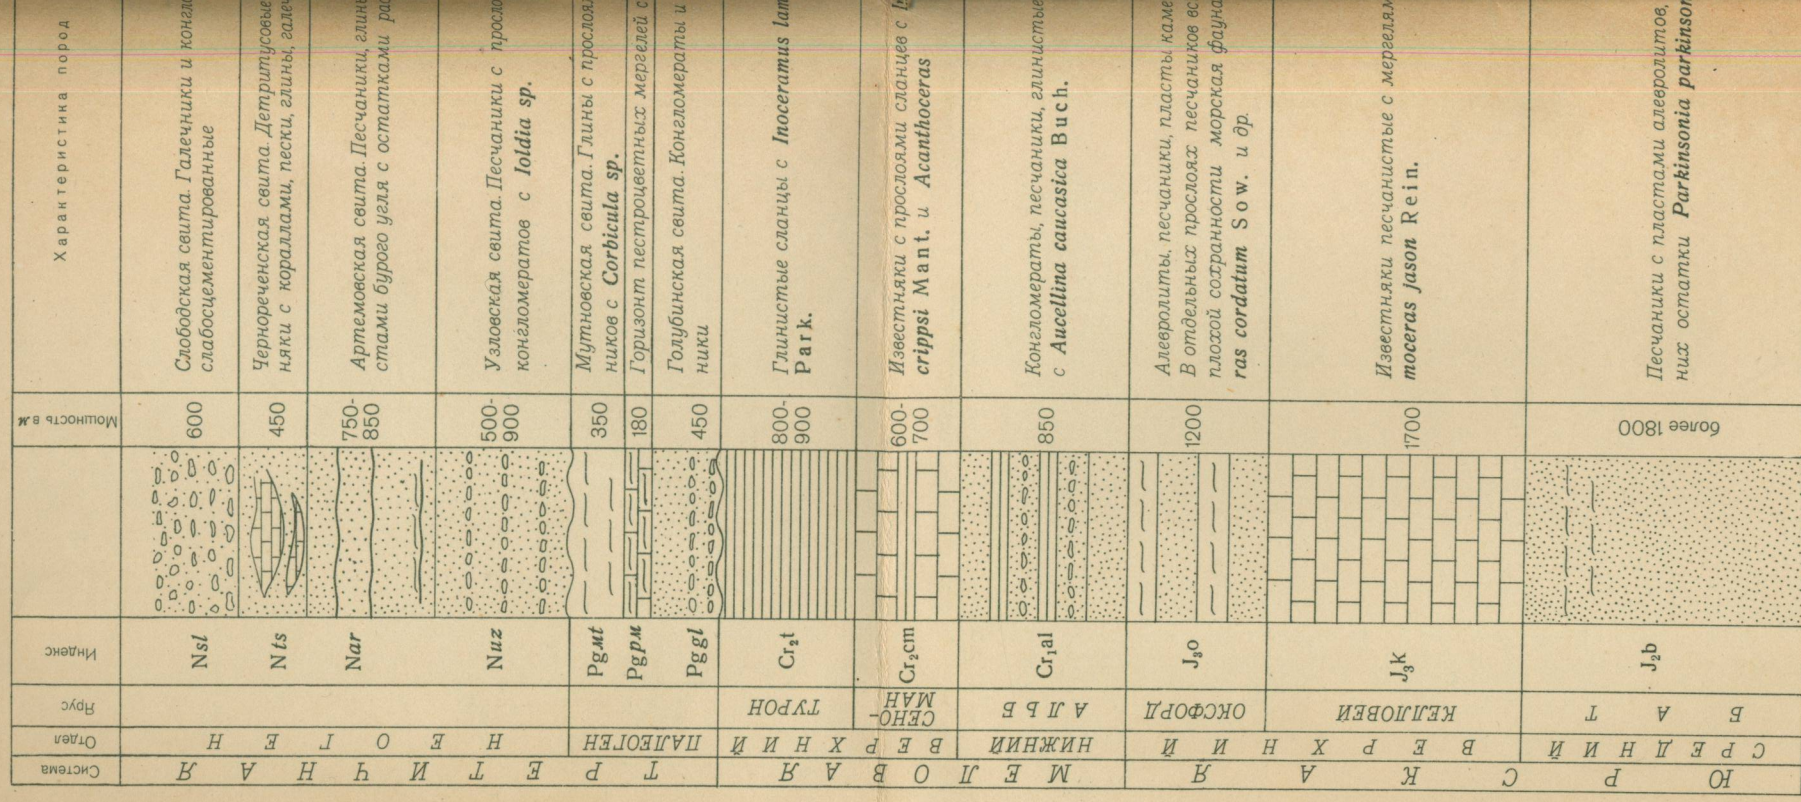 Система
Отдел
Ярус
Индекс
Мощность в м
Характеристика пород
ТРЕТИЧНАЯ
НЕОГЕН
Nsl
600
Слободская свита. Галечники и конгл
слабосцементированные
Nts
450
Чернореченская свита. Детритусовые
няки с кораллами, пески, глины, галеч
Nar
750-
850
Артемовская свита. Песчаники, глинь
стами бурого угля с остатками рас
Nuz
500-
900
Узловская свита. Песчаники с просло
конгломератов с Ioldia sp.
ПАЛЕОГЕН
Pgмt
350
Мутновская свита. Глины с прослоя
ников с Corbicula sp.
Pgpм
180
Горизонт пестроцветных мергелей с
Pggl
450
Голубинская свита. Конгломераты и
ники
МЕЛОВАЯ
ВЕРХНИЙ
ТУРОН
Cr₂t
800-
900
Глинистые сланцы с Inoceramus lam
Park.
СЕНО-
МАН
Cr₂cm
600-
700
Известняки с прослоями сланцев с In
crippsi Mant. и Acanthoceras
НИЖНИЙ
АЛЬБ
Cr₁al
850
Конгломераты, песчаники, глинистые
с Aucellina caucasica Buch.
ЮРСКАЯ
ВЕРХНИЙ
ОКСФОРД
J₃o
1200
Алевролиты, песчаники, пласты каме
В отдельных прослоях песчаников вс
плохой сохранности морская фауна
ras cordatum Sow. и др.
КЕЛЛОВЕЙ
J₃k
1700
Известняки песчанистые с мергелям
moceras jason Rein.
СРЕДНИЙ
БАТ
J₂b
более 1800
Песчаники с пластами алевролитов,
них остатки Parkinsonia parkinson